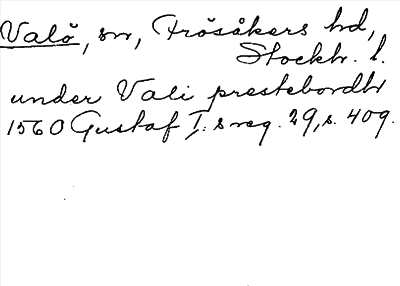 Valö, sn, Frösåkers hd,
Stockh. l.
under Vali prestebordh
1560 Gustaf I:s reg. 29, s. 409.